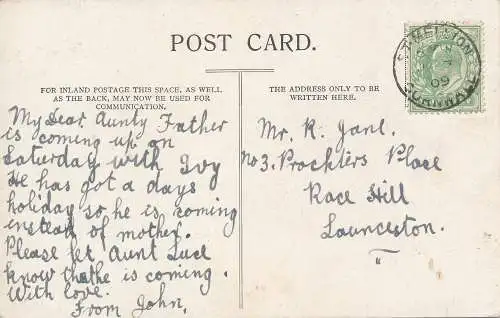 POST CARD.
FOR INLAND POSTAGE THIS SPACE, AS WELL
AS THE BACK, MAY NOW BE USED FOR
COMMUNICATION.
THE ADDRESS ONLY TO BE
WRITTEN HERE.
My Dear Aunty Father
is coming up on
Saturday with Ivy
He has got a days
holiday so he is coming
instead of mother.
Please let Aunt Luce
know that he is coming.
With love.
From John.
Mr. R. Jane.
no 3. Prockters Place
Race Hill
Launceston.
09
CORNWALL